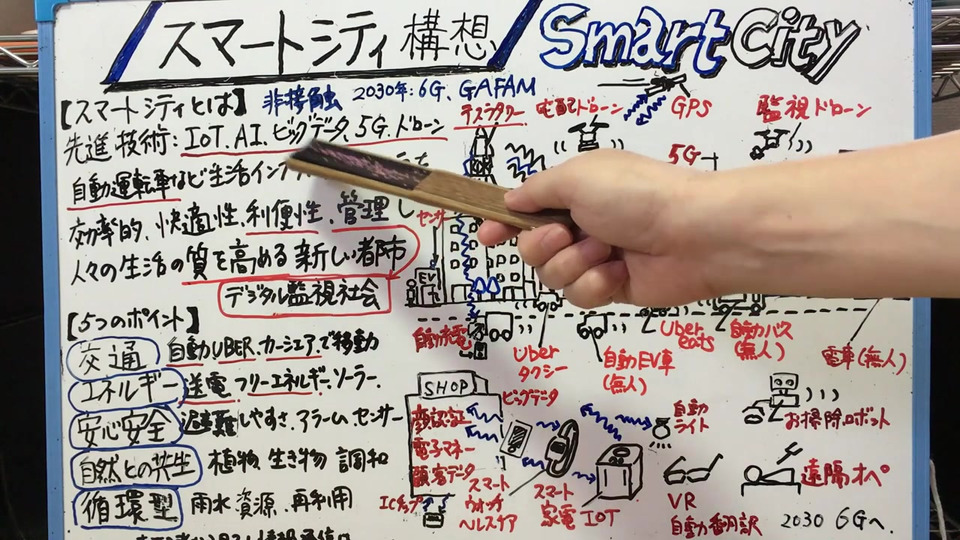 スマートシティ構想
Smart City
【スマートシティとは】
非接触 2030年:6G、GAFAM
先進技術:IoT、AI、ビッグデータ、5G、ドローン
自動運転車など生活イン
効率的、快適性、利便性、管理し
人々の生活の質を高める新しい都市
デジタル監視社会
【5つのポイント】
交通 自動UBER、カーシェアで移動
エネルギー 送電、フリーエネルギー、ソーラー、
安心安全 避難しやすさ、アラーム、センサー
自然との共生 植物、生き物 調和
循環型 雨水、資源、再利用
テスラタワー
宅配ドローン
GPS
監視ドローン
5G
センサー
EV
自動充電
Uber
タクシー
自動EV車
(無人)
Uber
eats
自動バス
(無人)
電車(無人)
SHOP
顔認証
電子マネー
顧客データ
ICチップ
ビッグデータ
スマート
ウォッチ
ヘルスケア
スマート
家電
IOT
自動
ライト
お掃除ロボット
VR
自動翻訳
遠隔オペ
2030 6Gへ